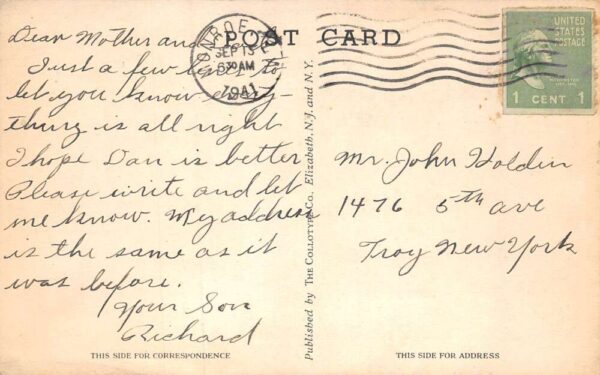 Dear Mother and
Just a few lines to
let you know every-
thing is all right
I hope Dan is better
Please write and let
me know. My address
is the same as it
was before.
Your Son
Richard
THIS SIDE FOR CORRESPONDENCE
POST CARD
MONROE
SEP 13
530 AM
1941
UNITED
STATES
POSTAGE
WASHINGTON
1 CENT 1
Published by THE COLLOTYPE CO. Elizabeth, N.J. and N.Y.
Mr. John Holdin
1476 5th ave
Troy New York
THIS SIDE FOR ADDRESS